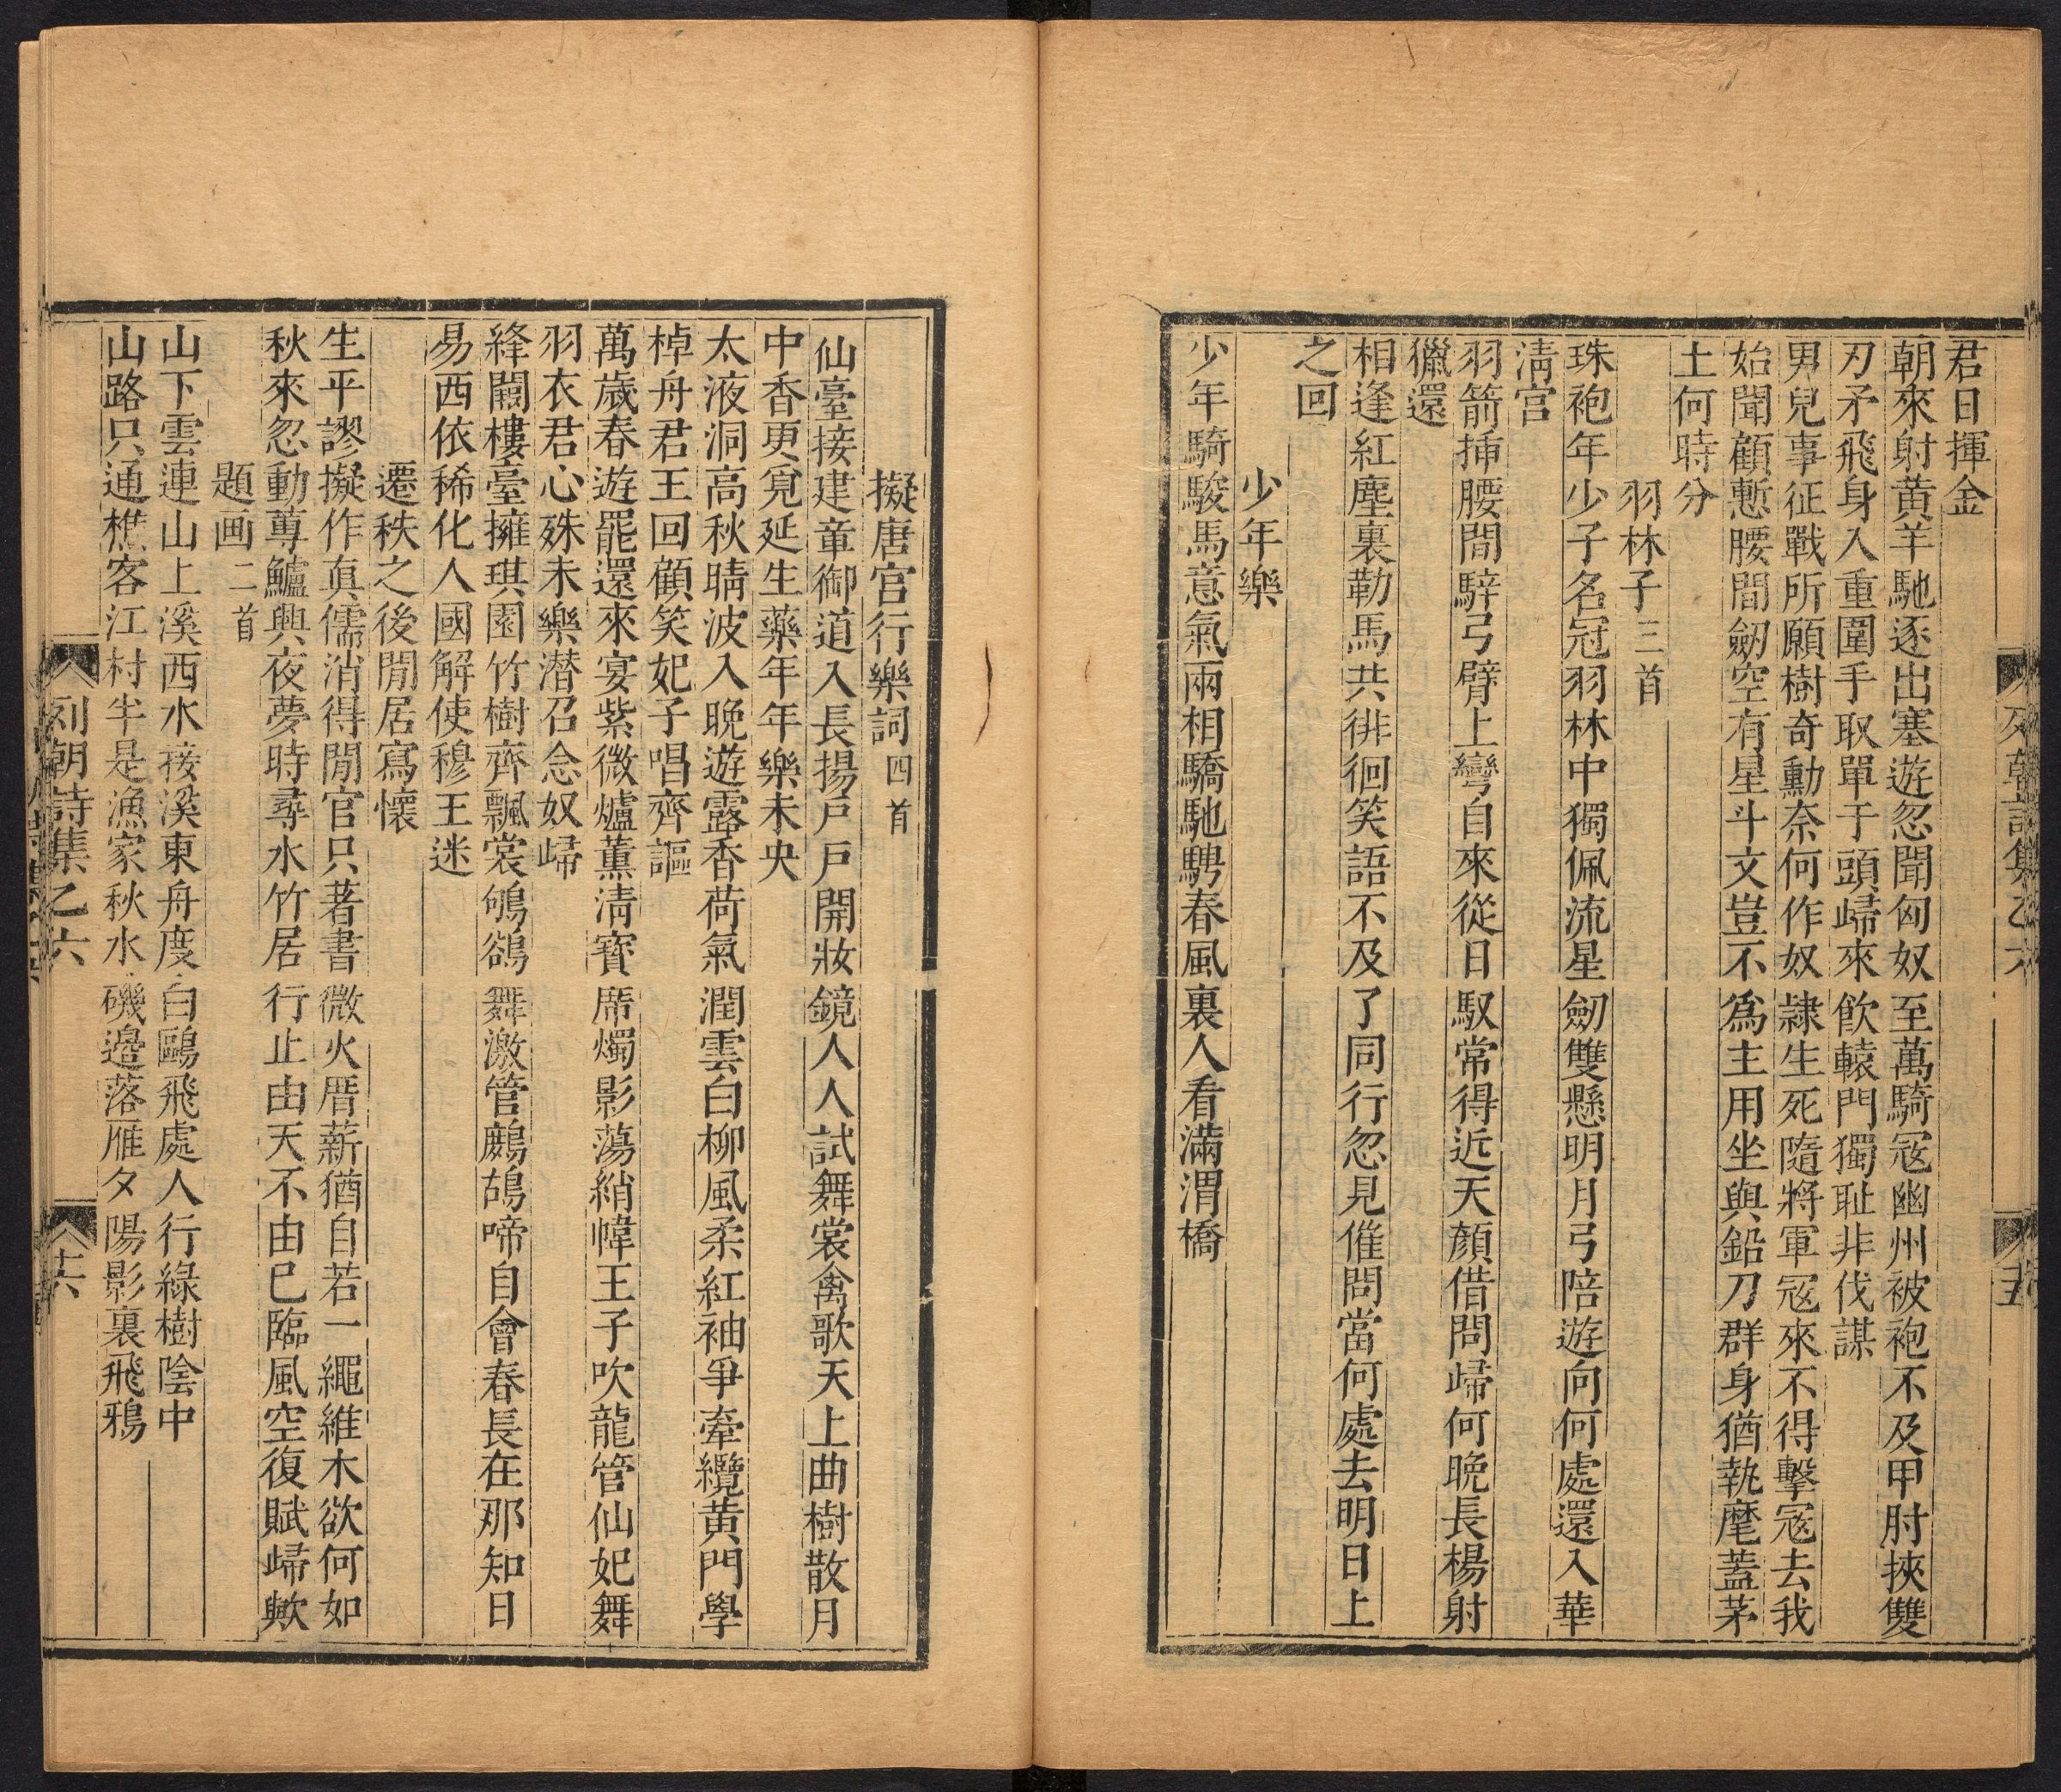 君日揮金
朝來射黃羊馳逐出塞遊忽聞匈奴至萬騎寇幽州被袍不及甲肘挾雙
刃矛飛身入重圍手取單于頭歸來飲轅門獨耻非伐謀
男兒事征戰所願樹奇勳奈何作奴隷生死隨將軍寇來不得擊寇去我
始聞顧慙腰間劒空有星斗文豈不爲主用坐與鉛刀群身猶執麾蓋茅
土何時分
羽林子三首
珠袍年少子名冠羽林中獨佩流星劒雙懸明月弓陪遊向何處還入華
淸宮
羽箭揷腰間騂弓臂上彎自來從日馭常得近天顏借問歸何晚長楊射
獵還
相逢紅塵裏勒馬共徘徊笑語不及了同行忽見催問當何處去明日上
之回
少年樂
少年騎駿馬意氣兩相驕馳騁春風裏人看滿渭橋
列朝詩集乙六
擬唐宮行樂詞四首
仙臺接建章御道入長揚戶戶開妝鏡人人試舞裳禽歌天上曲樹散月
中香更覓延生藥年年樂未央
太液洞高秋晴波入晚遊露香荷氣潤雲白柳風柔紅袖爭牽纜黃門學
棹舟君王回顧笑妃子唱齊謳
萬歲春遊罷還來宴紫微爐薰淸寶席燭影蕩綃幃王子吹龍管仙妃舞
羽衣君心殊未樂潛召念奴歸
絳闕樓臺擁琪園竹樹齊飄裳鴝鵒舞激管鷓鴣啼自會春長在那知日
易西依稀化人國解使穆王迷
遷秩之後閒居寫懷
生平謬擬作眞儒消得閒官只著書微火厝薪猶自若一繩維木欲何如
秋來忽動蓴鱸興夜夢時尋水竹居行止由天不由已臨風空復賦歸歟
題画二首
山下雲連山上溪西水接溪東舟度白鷗飛處人行綠樹陰中
山路只通樵客江村半是漁家秋水磯邊落雁夕陽影裏飛鴉
列朝詩集乙六
十六